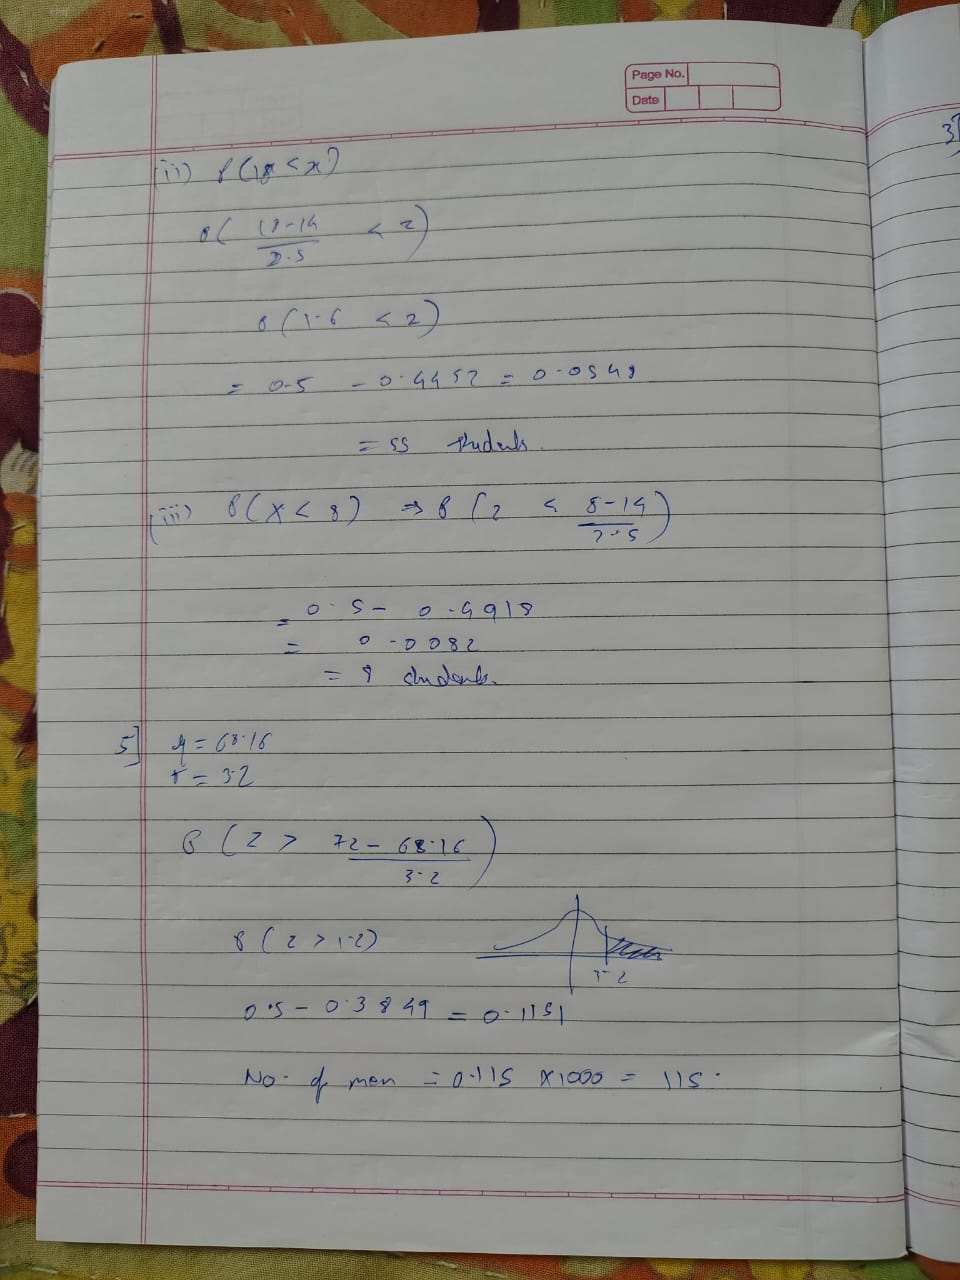 Page No.
Date
3]
(ii) P(18 < x)
P( 18-14 / 2.5 < z )
P(1.6 < z)
= 0.5 - 0.4452 = 0.0548
= 55 students.
(iii) P(X < 8) ⇒ P(z < 8-14 / 2.5)
= 0.5 - 0.4918
= 0.0082
= 8 students.
5] μ = 68.16
σ = 3.2
P(Z > 72 - 68.16 / 3.2)
P(z > 1.2)
1.2
0.5 - 0.3849 = 0.1151
No. of men = 0.115 X 1000 = 115.